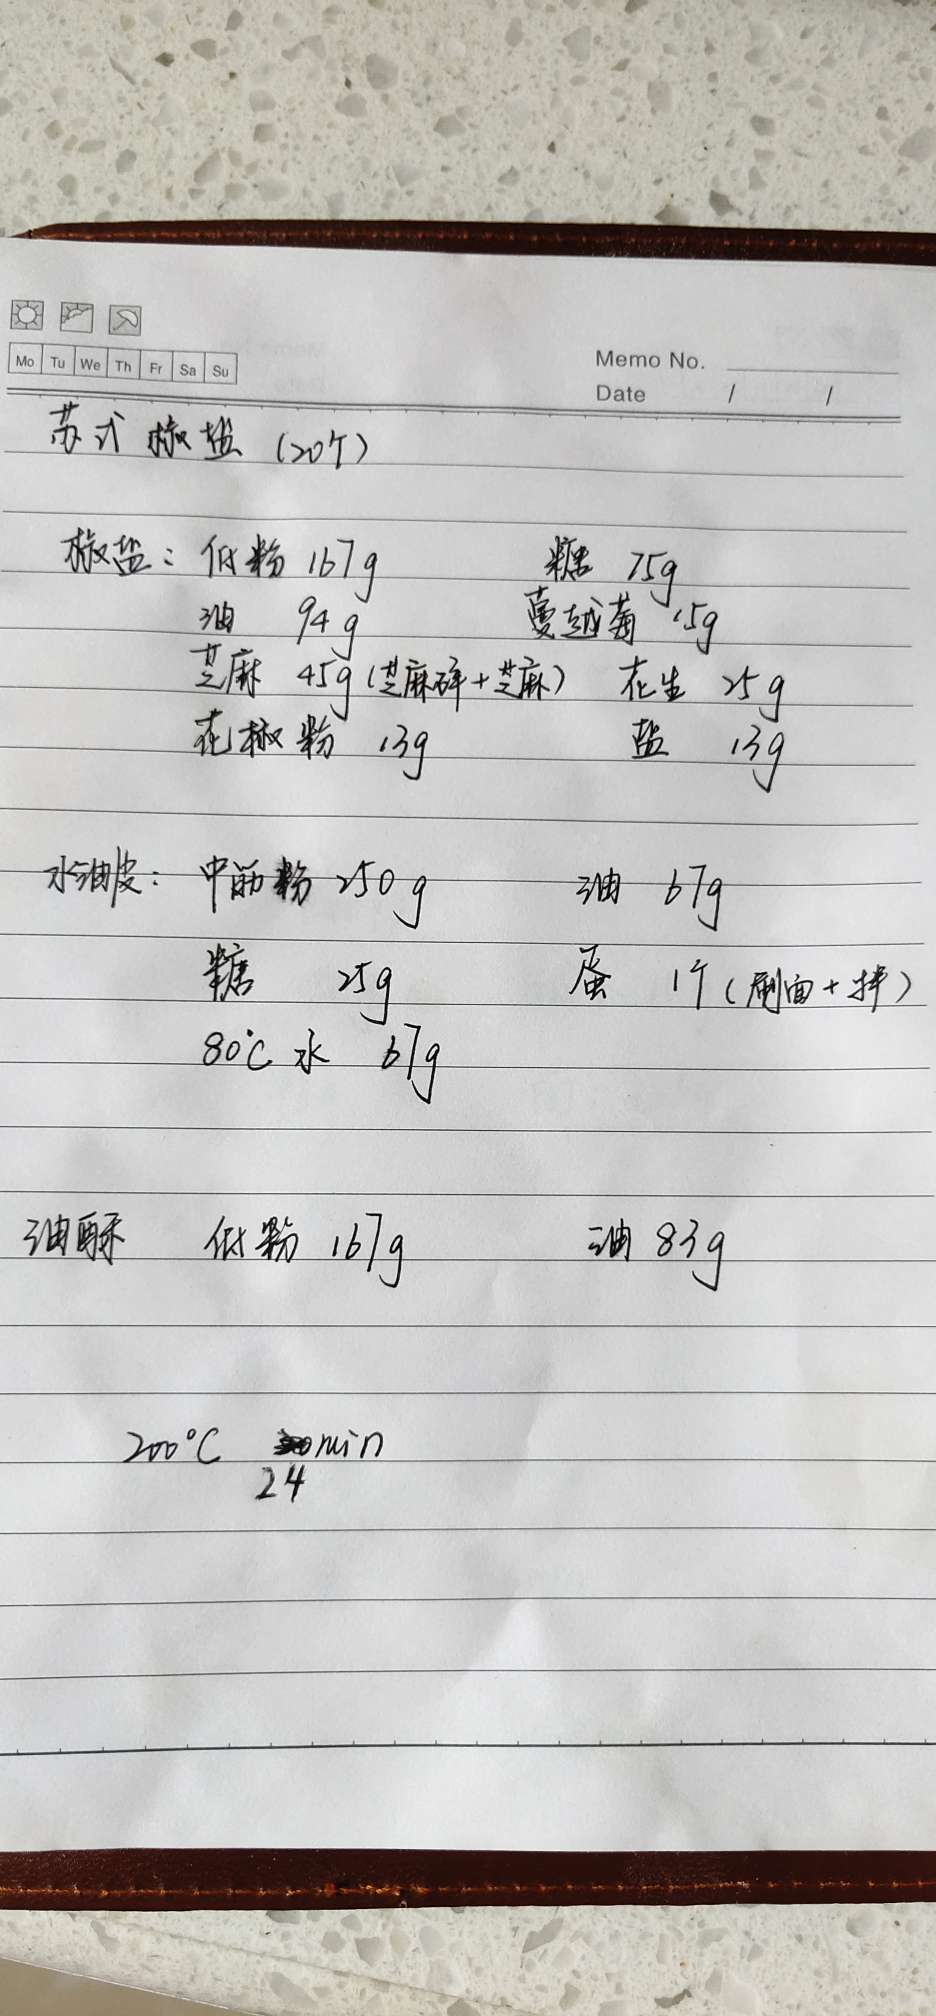 Mo Tu We Th Fr Sa Su
Memo No.
Date / /
苏式椒盐 (20个)
椒盐: 低粉 167g 糖 75g
油 94g 蔓越莓 15g
芝麻 45g (芝麻碎+芝麻) 花生 25g
花椒粉 13g 盐 13g
水油皮: 中筋粉 250g 油 67g
糖 25g 蛋 1个 (刷面+拌)
80℃水 67g
油酥 低粉 167g 油 83g
200℃ min
24